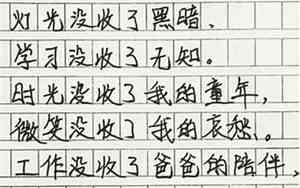 灯光没收了黑暗、
学习没收了无知。
时光没收了我的童年，
微笑没收了我的哀愁。
工作没收了爸爸的陪伴，